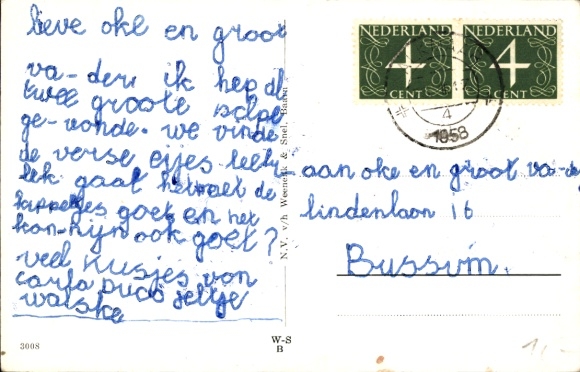 lieve oke en groot
va-der. ik hep al
twee groote
ge-vonde. we vinde
de verse eijes
lek gaat het met de
kippetjes goet en het
kon-nijn ook goet?
veel kusjes von
jeltje
NEDERLAND
4
CENT
NEDERLAND
4
CENT
4
1958
aan oke en groot va-de
lindenlaan 16
Bussum.
N.V. v/h Weenenk & Snel, Baarn
3008
W-S
B
1,-